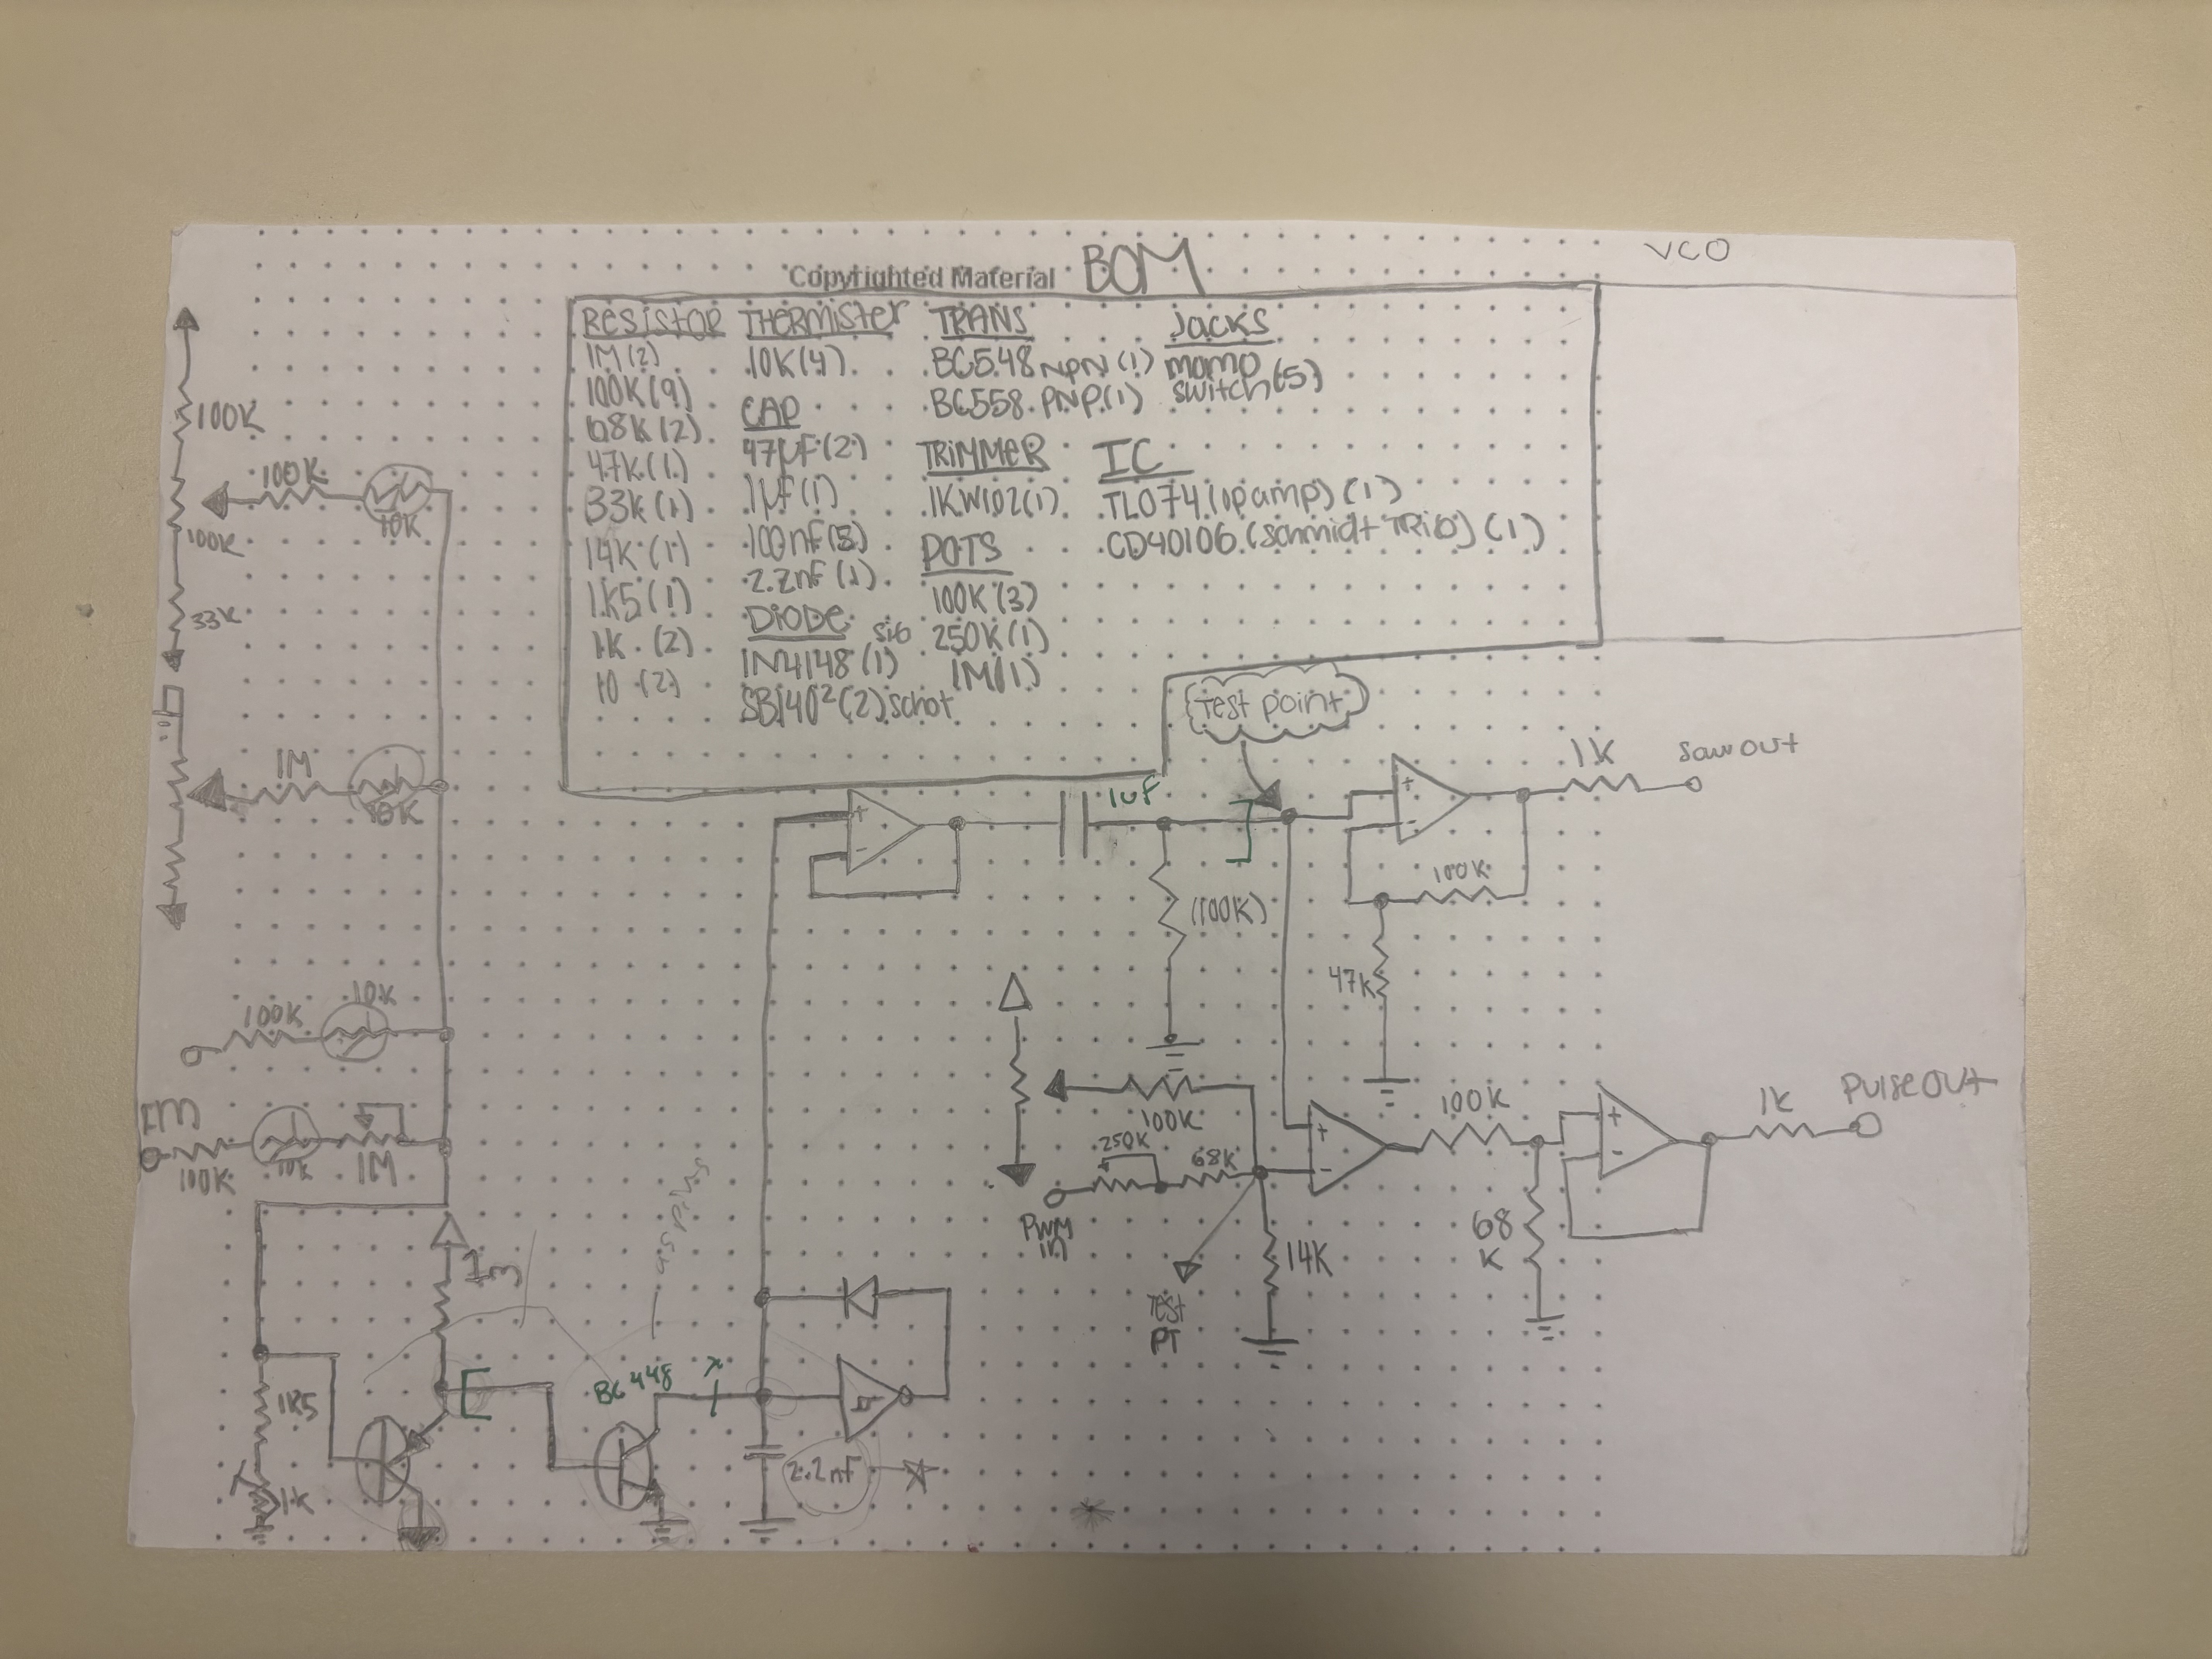 VCO
Copyrighted Material BOM
RESISTOR
1M(2)
100K(9)
68K(2)
47K(1)
33K(1)
14K(1)
1K5(1)
1K(2)
10(2)
THERMISTER
10K(4)
CAP
47µF(2)
1µF(1)
100nF(3)
2.2nF(1)
DIODE
sig
1N4148(1)
SB140²(2) schot
TRANS
BC548 NPN(1)
BC558 PNP(1)
TRIMMER
1KW102(1)
POTS
100K(3)
250K(1)
1M(1)
JACKS
mono
switch(5)
IC
TL074(opamp)(1)
CD40106(schmidt TRIG)(1)
100K
100K
10K
100K
33K
1M
10K
Test point
1uF
1K
Saw out
+
-
+
-
100K
(100K)
47K
10K
100K
FM
100K
10K
1M
100K
250K
68K
PWM
in
+
-
100K
+
-
1K
Pulse OUT
68
K
14K
Test
PT
1K5
1K
BC448
x
2.2nF